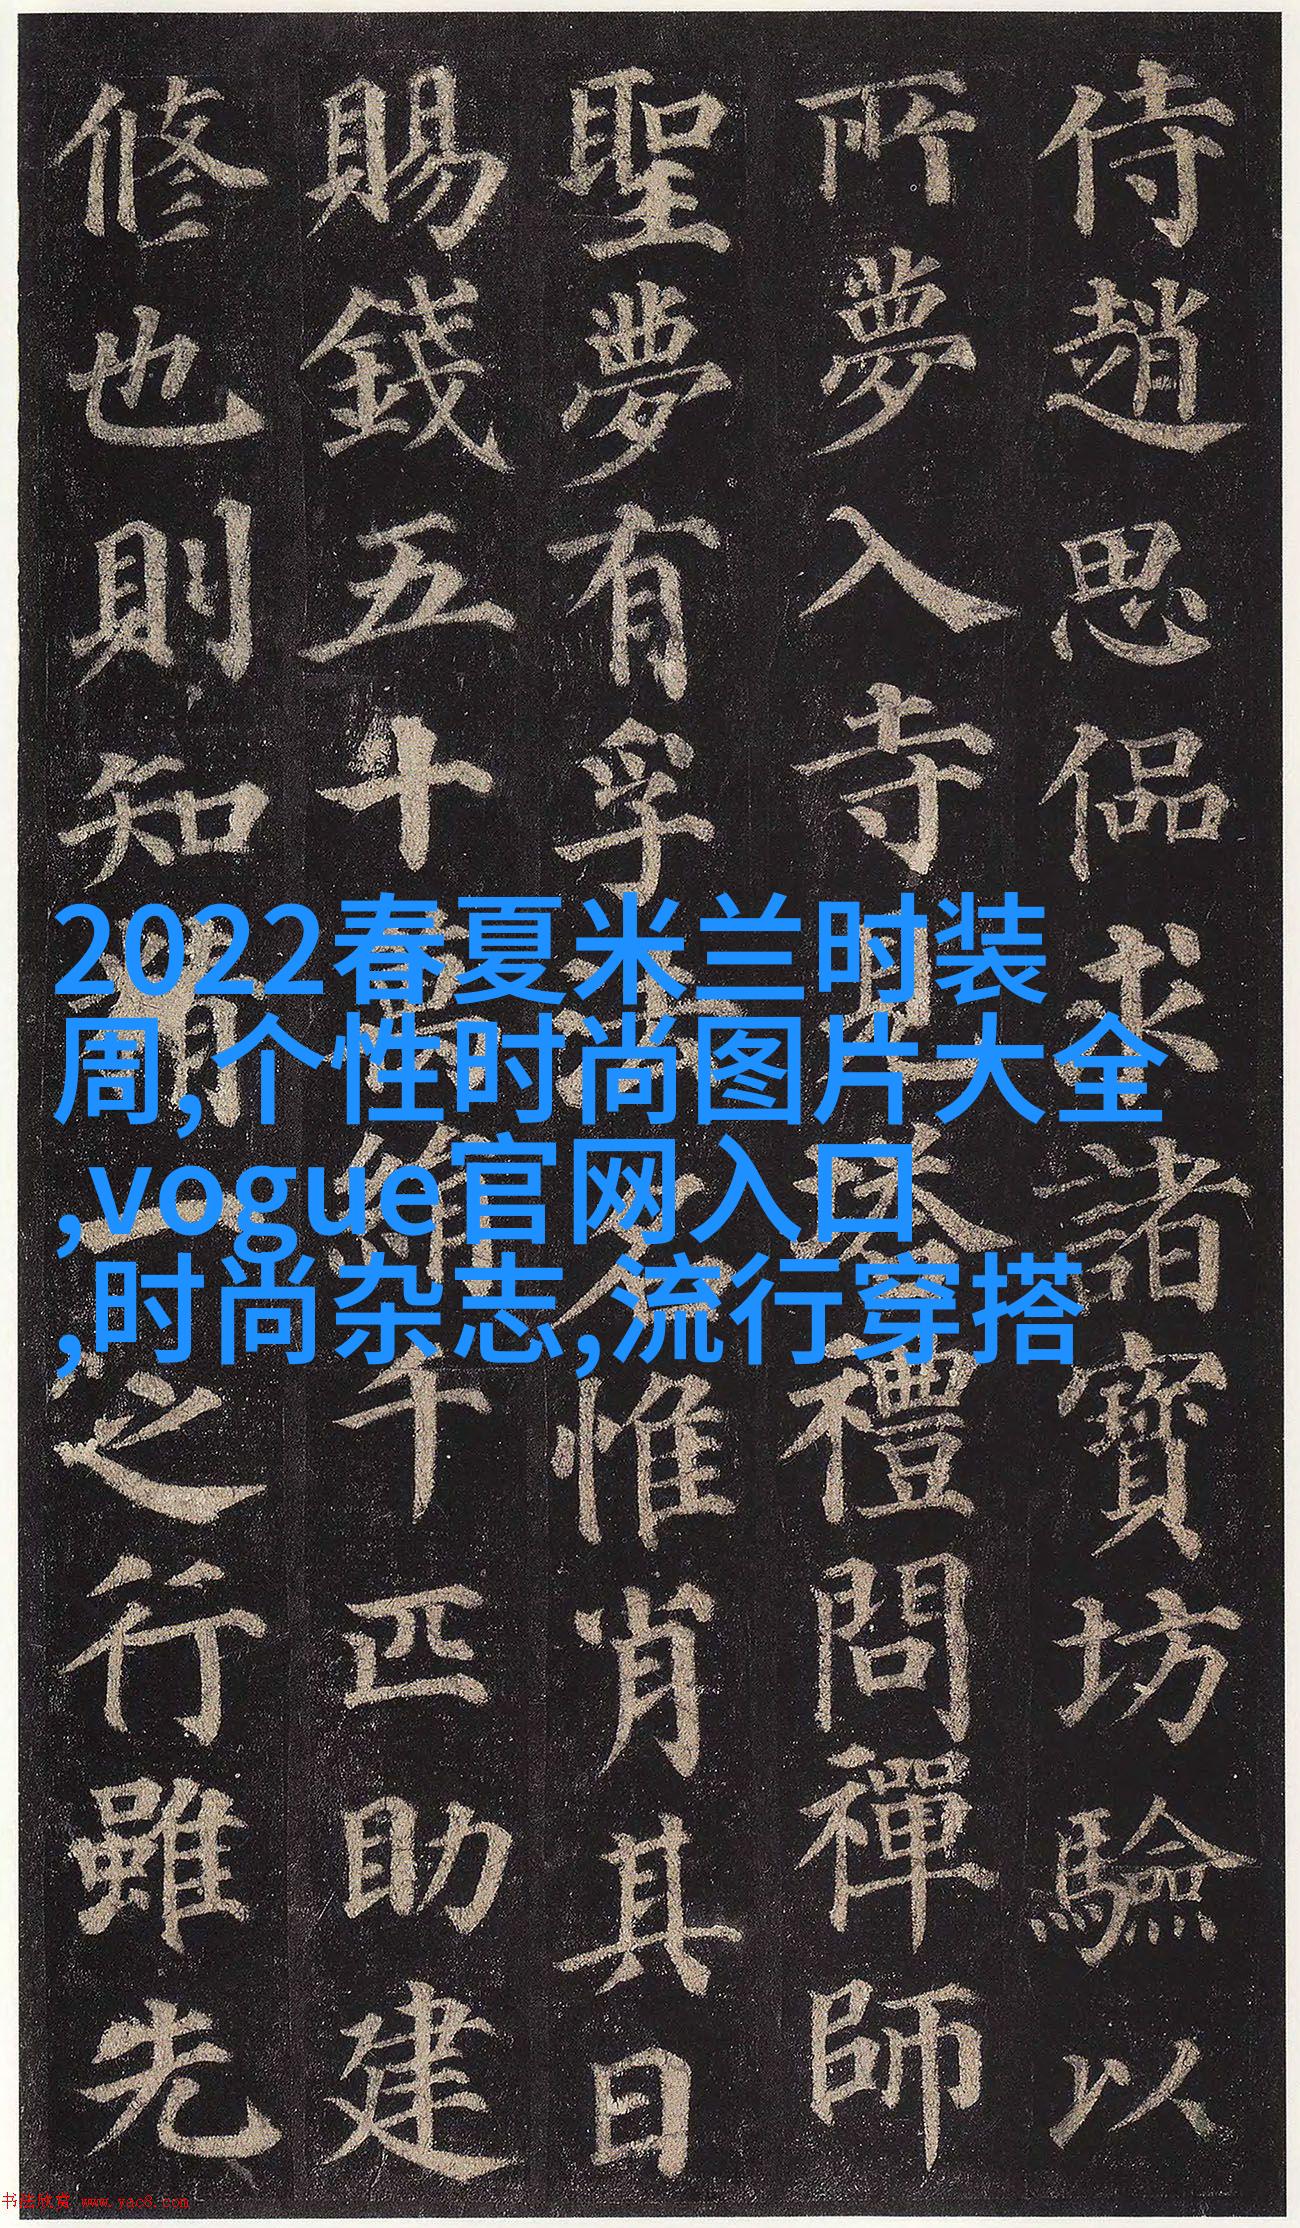 侍趙思偘求諸寶坊驗以
所夢入寺見塔禮問禪師
聖夢有孚法名惟肖其日
賜錢五十萬絹千匹助建
修也則知精一之行雖先
2022春夏米兰时装
周,个性时尚图片大全
,vogue官网入口
,时尚杂志,流行穿搭
书法欣赏 www.yac8.com